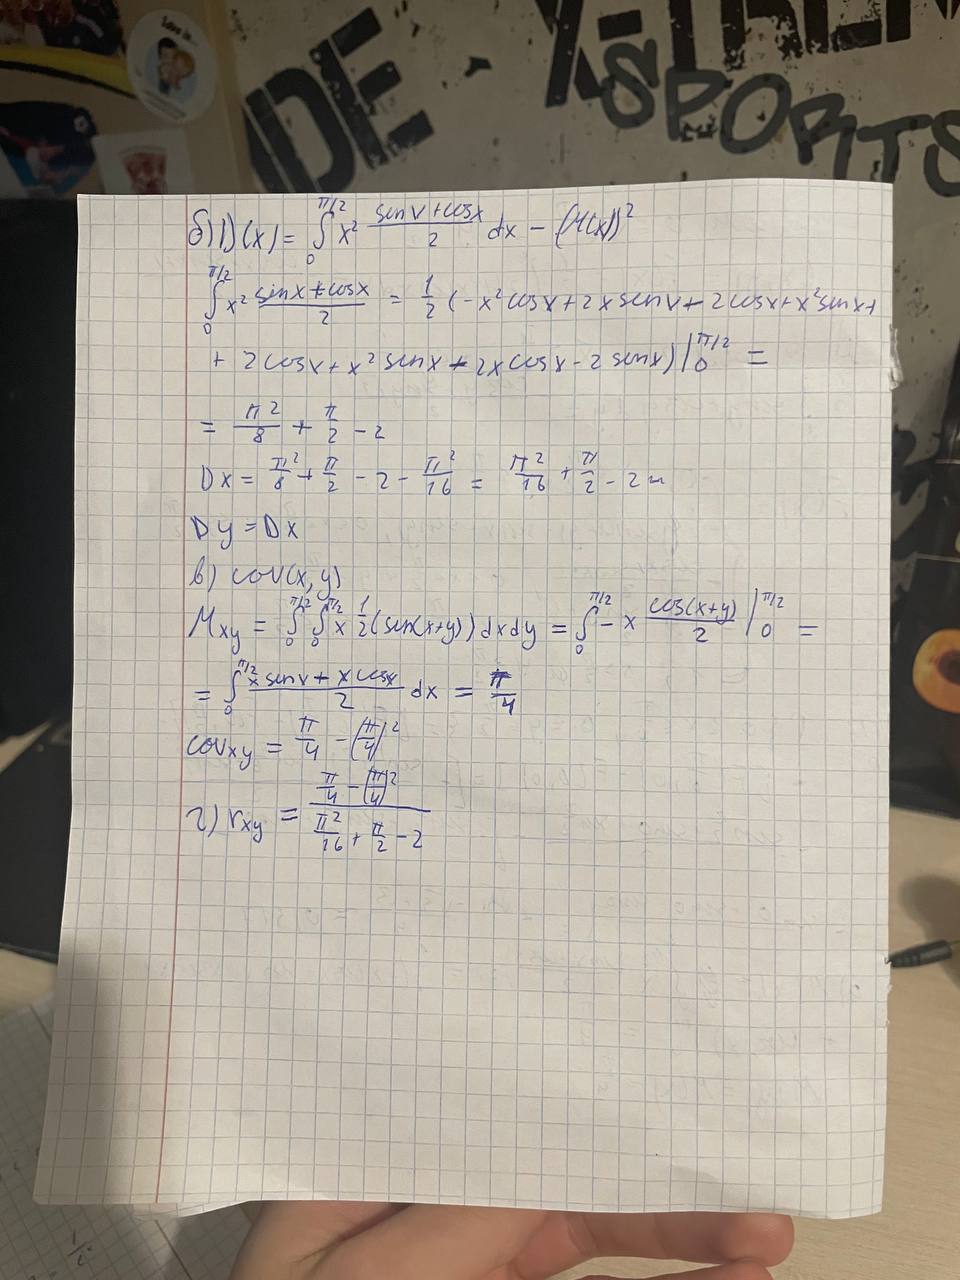 IDE · X-TREM
SPORTS
Love is...
б) D(x) = ∫₀^{π/2} x² (sinx+cosx)/2 dx − (M(x))²
∫₀^{π/2} x² (sinx+cosx)/2 = 1/2 (−x²cosx+2xsinx+2cosx+x²sinx+
+ 2cosx+x²sinx+2xcosx−2sinx)|₀^{π/2} =
= π²/8 + π/2 − 2
Dx = π²/8 + π/2 − 2 − π²/16 = π²/16 + π/2 − 2
Dy = Dx
в) cov(x,y)
Mxy = ∫₀^{π/2} ∫₀^{π/2} x 1/2 (sin(x+y)) dxdy = ∫₀^{π/2} −x cos(x+y)/2 |₀^{π/2} =
= ∫₀^{π/2} (x sinx + x cosx)/2 dx = π/4
covxy = π/4 − (π/4)²
г) rxy = (π/4 − (π/4)²)/(π²/16 + π/2 − 2)